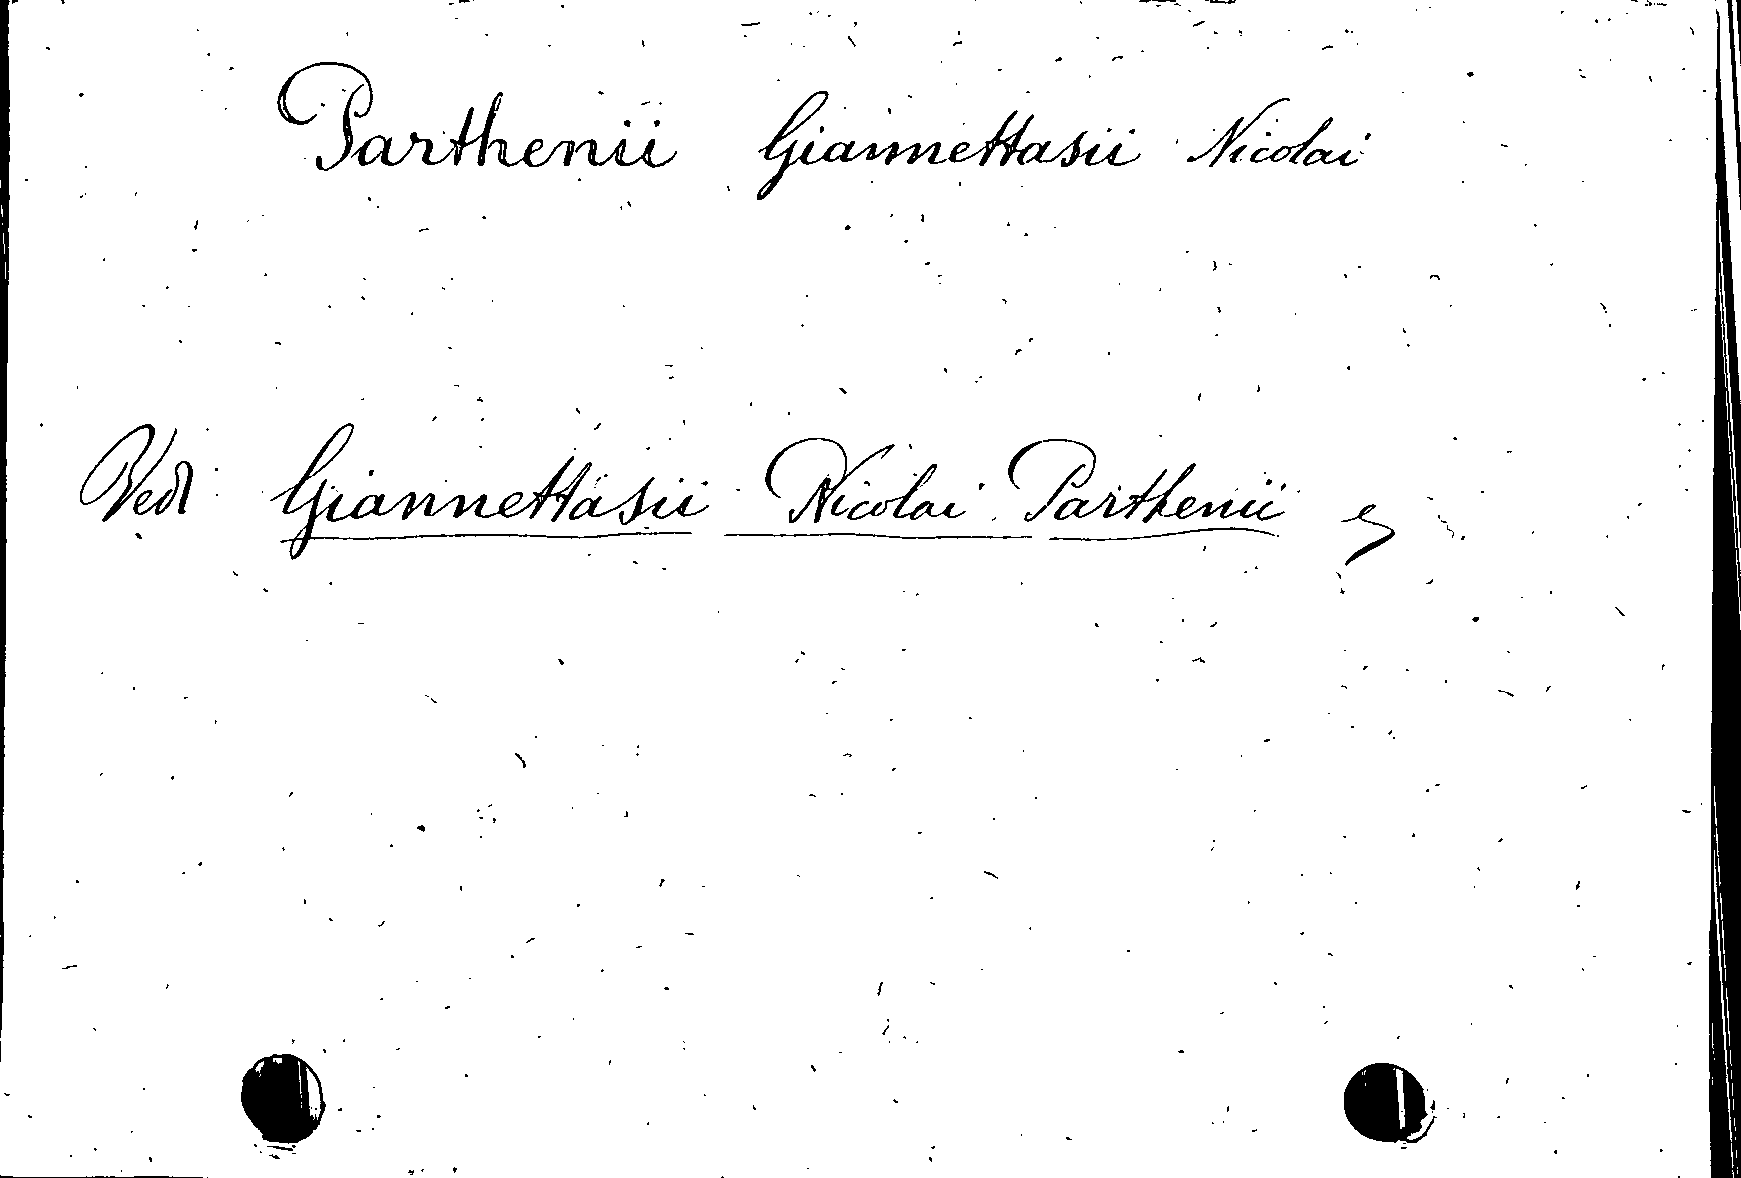 Parthenii Giannettasii Nicolai
Vedi Giannettasii Nicolai Parthenii